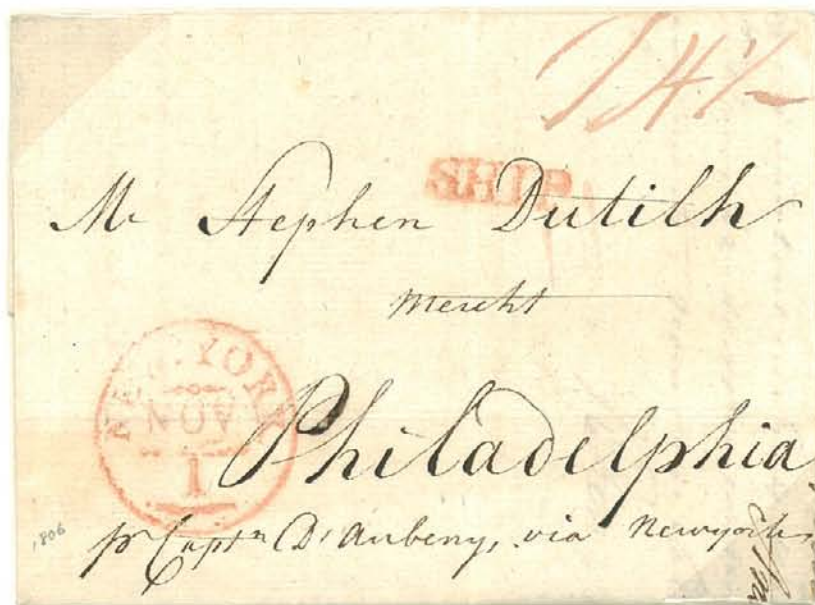 SHIP
Mr Stephen Dutilh
Mercht
NEW-YORK
NOV
1
Philadelphia
1806
pr Captn D'Aubeny, via Newyork